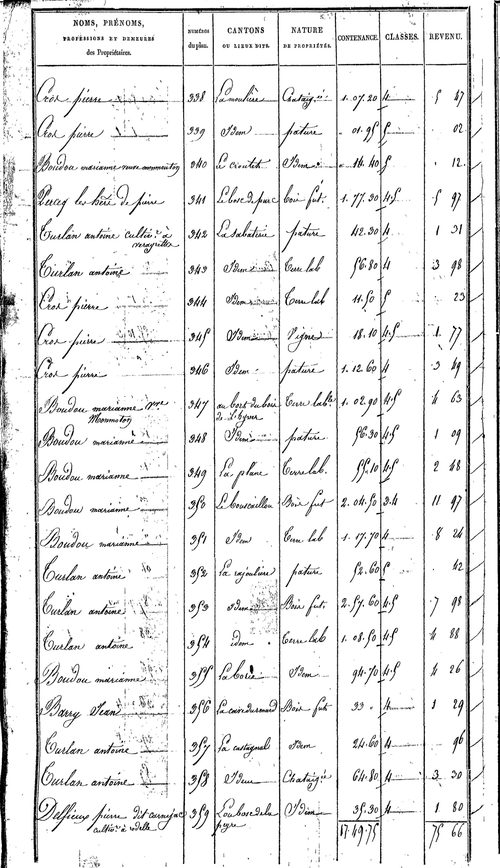 NOMS, PRÉNOMS, PROFESSIONS ET DEMEURES des Propriétaires. NUMÉROS du plan. CANTONS OU LIEUX DITS. NATURE DE PROPRIÉTÉS. CONTENANCE. CLASSES. REVENU.
Cros pierre 338 La moulière Chataig. 1. 07. 20 4 5 47
Cros pierre 339 Idem pature 01. 95 5 02
Boudou marianne 340 Idem 14. 40 5 12
pierre 341 Le bosc de parc bois fut. 1. 77. 30 4.5 5 97
Turlan antoine cultiv. à 342 La sabaterie pature 42. 30 4 1 31
Turlan antoine 343 Idem Terre lab 56. 80 4 3 98
Cros pierre 344 Idem Terre lab 11. 50 5 23
Cros pierre 345 Idem Vigne 18. 10 4.5 1 77
Cros pierre 346 Idem pature 1. 12. 60 4 3 49
Boudou marianne 347 au bort du bois Terre lab. 1. 02. 90 4.5 4 63
Boudou marianne 348 Idem pature 56. 30 4.5 1 09
Boudou marianne 349 La plane Terre lab. 55. 10 4.5 2 48
Boudou marianne 350 Le bouscaillou Bois fut 2. 04. 50 3.4 11 97
Boudou marianne 351 Idem Terre lab 1. 17. 70 4 8 24
Turlan antoine 352 La rajoulière pature 52. 60 5 42
Turlan antoine 353 Idem Bois fut. 2. 57. 60 4.5 7 98
Turlan antoine 354 idem Terre lab 1. 08. 50 4.5 4 88
Boudou marianne 355 La borie Idem 94. 70 4.5 4 26
Barry Jean 356 Bois fut 33 4 1 29
Turlan antoine 357 La castagnal Idem 24. 60 4 96
Turlan antoine 358 Idem Chataig. 64. 80 4 3 30
Delfieux pierre dit 359 Lou bosc de la Idem 35. 30 4 1 80
cultiv. à peyre
17. 49. 75 75 66